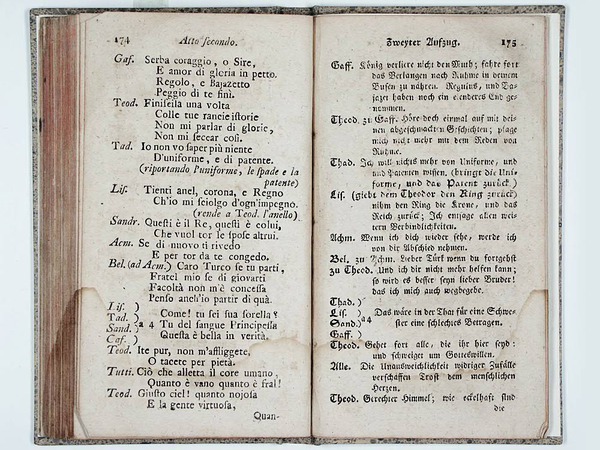 174 Atto secondo.
Gas. Serba coraggio, o Sire,
E amor di gloria in petto.
Regolo, e Bajazetto
Peggio di te finì.
Teod. Finiscila una volta
Colle tue rancie istorie
Non mi parlar di glorie,
Non mi seccar così.
Tad. Io non vo saper più niente
D'uniforme, e di patente.
(riportando l'uniforme, le spade e la
patente)
Lis. Tienti anel, corona, e Regno
Ch'io mi sciolgo d'ogn'impegno.
(rende a Teod. l'anello)
Sandr. Questi è il Re, questi è colui,
Che vuol tor le spose altrui.
Acm. Se di nuovo ti rivedo
E per tor da te congedo.
Bel. (ad Acm.) Caro Turco se tu parti,
Fratel mio se di giovarti
Facoltà non m'è concessa
Penso anch'io partir di quà.
Lis. )
Tad. ) Come! tu sei sua sorella?
Sand. ) a 4 Tu del sangue Principessa
Gas. ) Questa è bella in verità.
Teod. Ite pur, non m'affliggete,
O tacete per pietà.
Tutti. Ciò che alletta il core umano,
Quanto è vano quanto è fral!
Teod. Giusto ciel! quanto nojosa
E la gente virtuosa,
Quan-
Zweyter Aufzug. 175
Gaff. König verliere nicht den Muth; fahre fort
das Verlangen nach Ruhme in deinem
Busen zu nähren. Regulus, und Ba-
jazet haben noch ein elenderes End ge-
nommen.
Theod. zu Gaff. Höre doch einmal auf mit dei-
nen abgeschmackten Geschichten; plage
mich nicht mehr mit dem Reden von
Ruhme.
Thad. Ich will nichts mehr von Uniforme, und
und Patenten wissen. (bringt die Uni-
forme, und das Patent zurück.)
Lis. (giebt dem Theodor den Ring zurück)
nihm den Ring die Krone, und das
Reich zurück; Ich entsage allen wei-
tern Verbindlichkeiten.
Achm. Wenn ich dich wieder sehe, werde ich
von dir Abschied nehmen.
Bel. zu Achm. Lieber Türk wenn du fortgehst
zu Theod. Und ich dir nicht mehr helfen kann;
so wird es besser seyn lieber Bruder!
das ich mich auch wegbegebe.
Thad. )
Lis. ) Das wäre in der That für eine Schwe-
Sand.) a4 ster eine schlechtes Betragen.
Gaff. )
Theod. Gehet fort alle, die ihr hier seyd:
und schweiget um Gotteswillen.
Alle. Die Unausweichlichkeit widriger Zufälle
verschaffen Trost dem menschlichen
Herzen.
Theod. Gerechter Himmel; wie eckelhaft sind
die